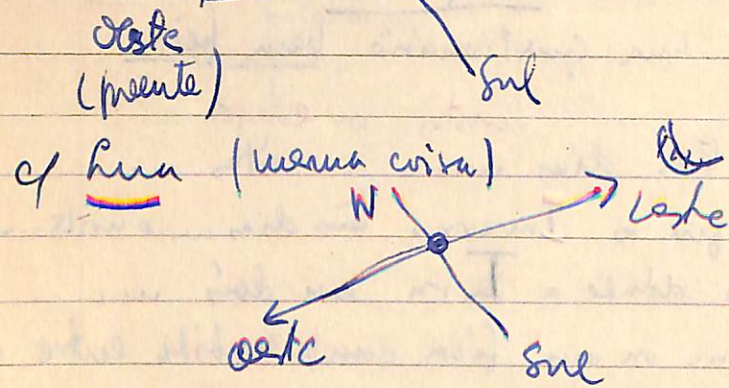 oeste
(poente)
Sul
c/ Lua (mesma coisa)
N
Leste
oeste
Sul